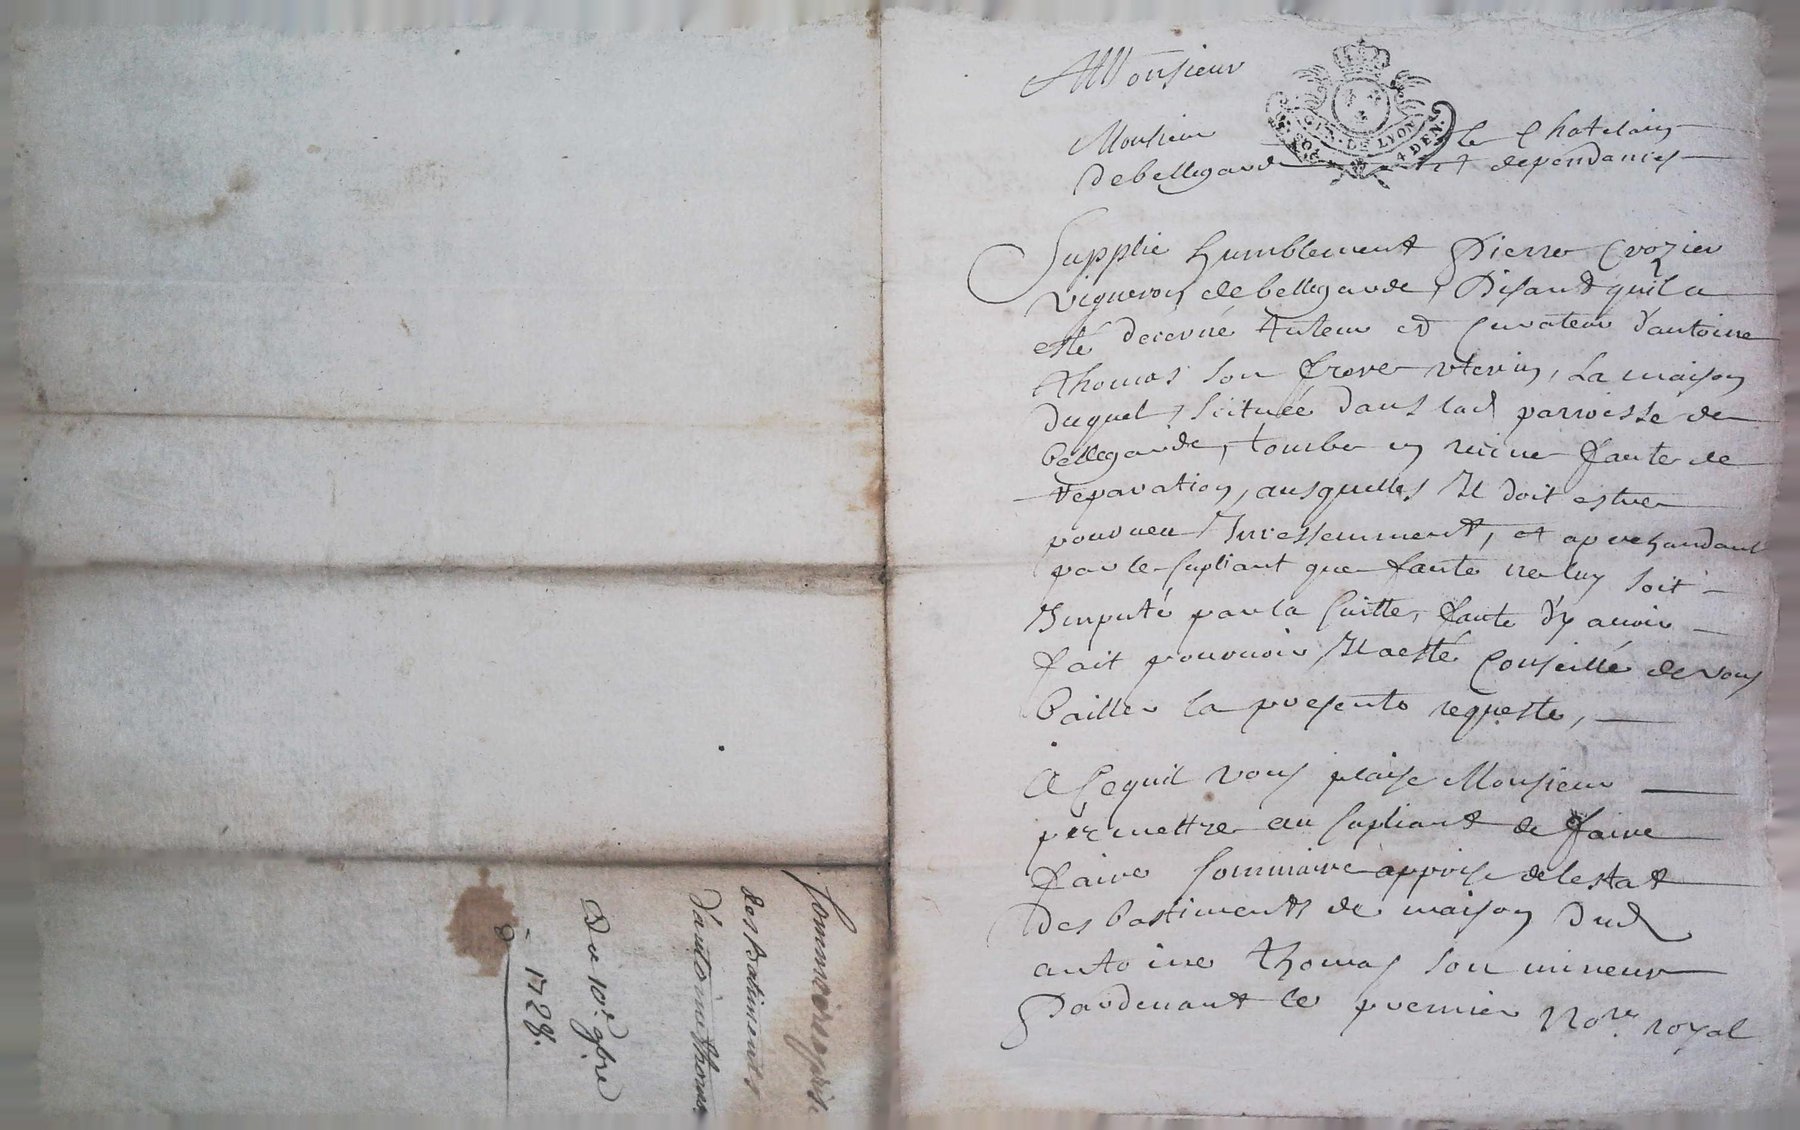 A Monsieur
Monsieur le Chatelain
debellegarde et dependances
GEN. DE LYON
SOLS. 4 DEN.
Supplie humblement Pierre Crozier
vigneron debellegarde, Disant quil a
esté decerné tuteur et Curateur d'antoine
thomas son frere uterin, La maison
duquel, scituée dans lad parroisse de
bellegarde, tombe en ruine faute de
reparation, ausquelles Il doit estre
pourveu Incessemment, et aprehandant
par le supliant que faute ne luy soit
Imputé par la suitte, faute d'y avoir
fait pourvoir Il a esté Conseillé de vous
bailler la presente requeste,
A Ce quil vous plaise Monsieur
permettre au supliant de faire
faire sommaire apprise de lestat
des bastiments de maison dud
antoine thomas son mineur
Pardevant le premier No.re royal
sommaire aprise
des batiments
d'antoine thomas
Du 10e 9bre
1728.